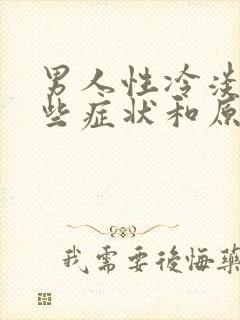 男人性冷淡
些症状和原
我需要後悔藥